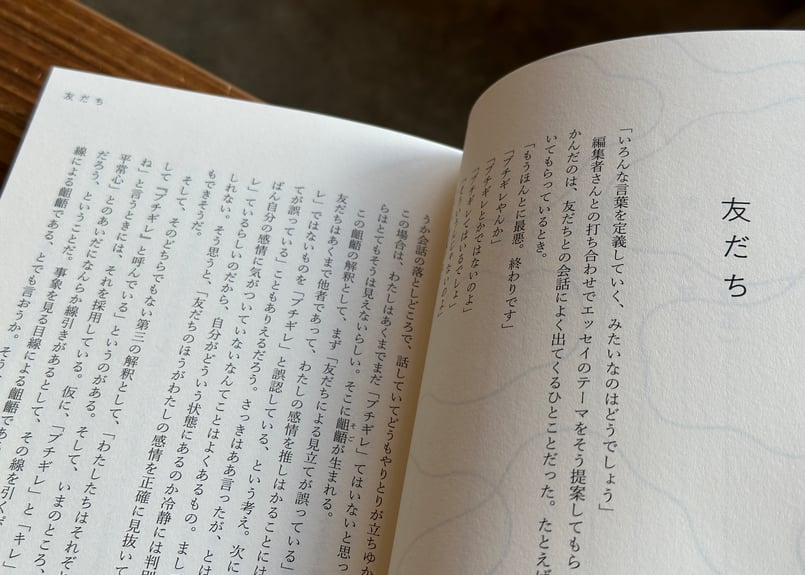 友だち
「いろんな言葉を定義していく、みたいなのはどうでしょう」
編集者さんとの打ち合わせでエッセイのテーマをそう提案してもら
かんだのは、友だちとの会話によく出てくるひとことだった。たとえば
いてもらっているとき。
「もうほんとに最悪。終わりです」
「ブチギレやんか」
「ブチギレとかではないのよ」
「ブチギレてはいるでしょ」
友だち
うか会話の落としどころで、話していてどうもやりとりが立ちゆか
この場合は、わたしはあくまでまだ「ブチギレ」てはいないと思っ
らはとてもそうは見えないらしい。そこに齟齬が生まれる。
そご
この齟齬の解釈として、まず「友だちによる見立てが誤っている」
友だちはあくまで他者であって、わたしの感情を推しはかることには
レ」ではないものを「ブチギレ」と誤認している、という考え。次に
てが誤っている」こともありえるだろう。さっきはああ言ったが、とは
ばん自分の感情に気がついていないなんてことはよくあるもの。まし
レ」ているらしいのだから、自分がどういう状態にあるのか冷静には判別
しれない。そう思うと、「友だちのほうがわたしの感情を正確に見抜いて
もできそうだ。
そして、そのどちらでもない第三の解釈として、「わたしたちはそれぞ
して『ブチギレ』と呼んでいる」というのがある。そして、いまのところ、
ね」と言うときには、それを採用している。仮に、「ブチギレ」と「キレ」
平常心」とのあいだになんらか線引きがあるとして、その線を引く
だろう、ということだ。事象を見る目線による齟齬
線による齟齬である、とでも言おうか。そう